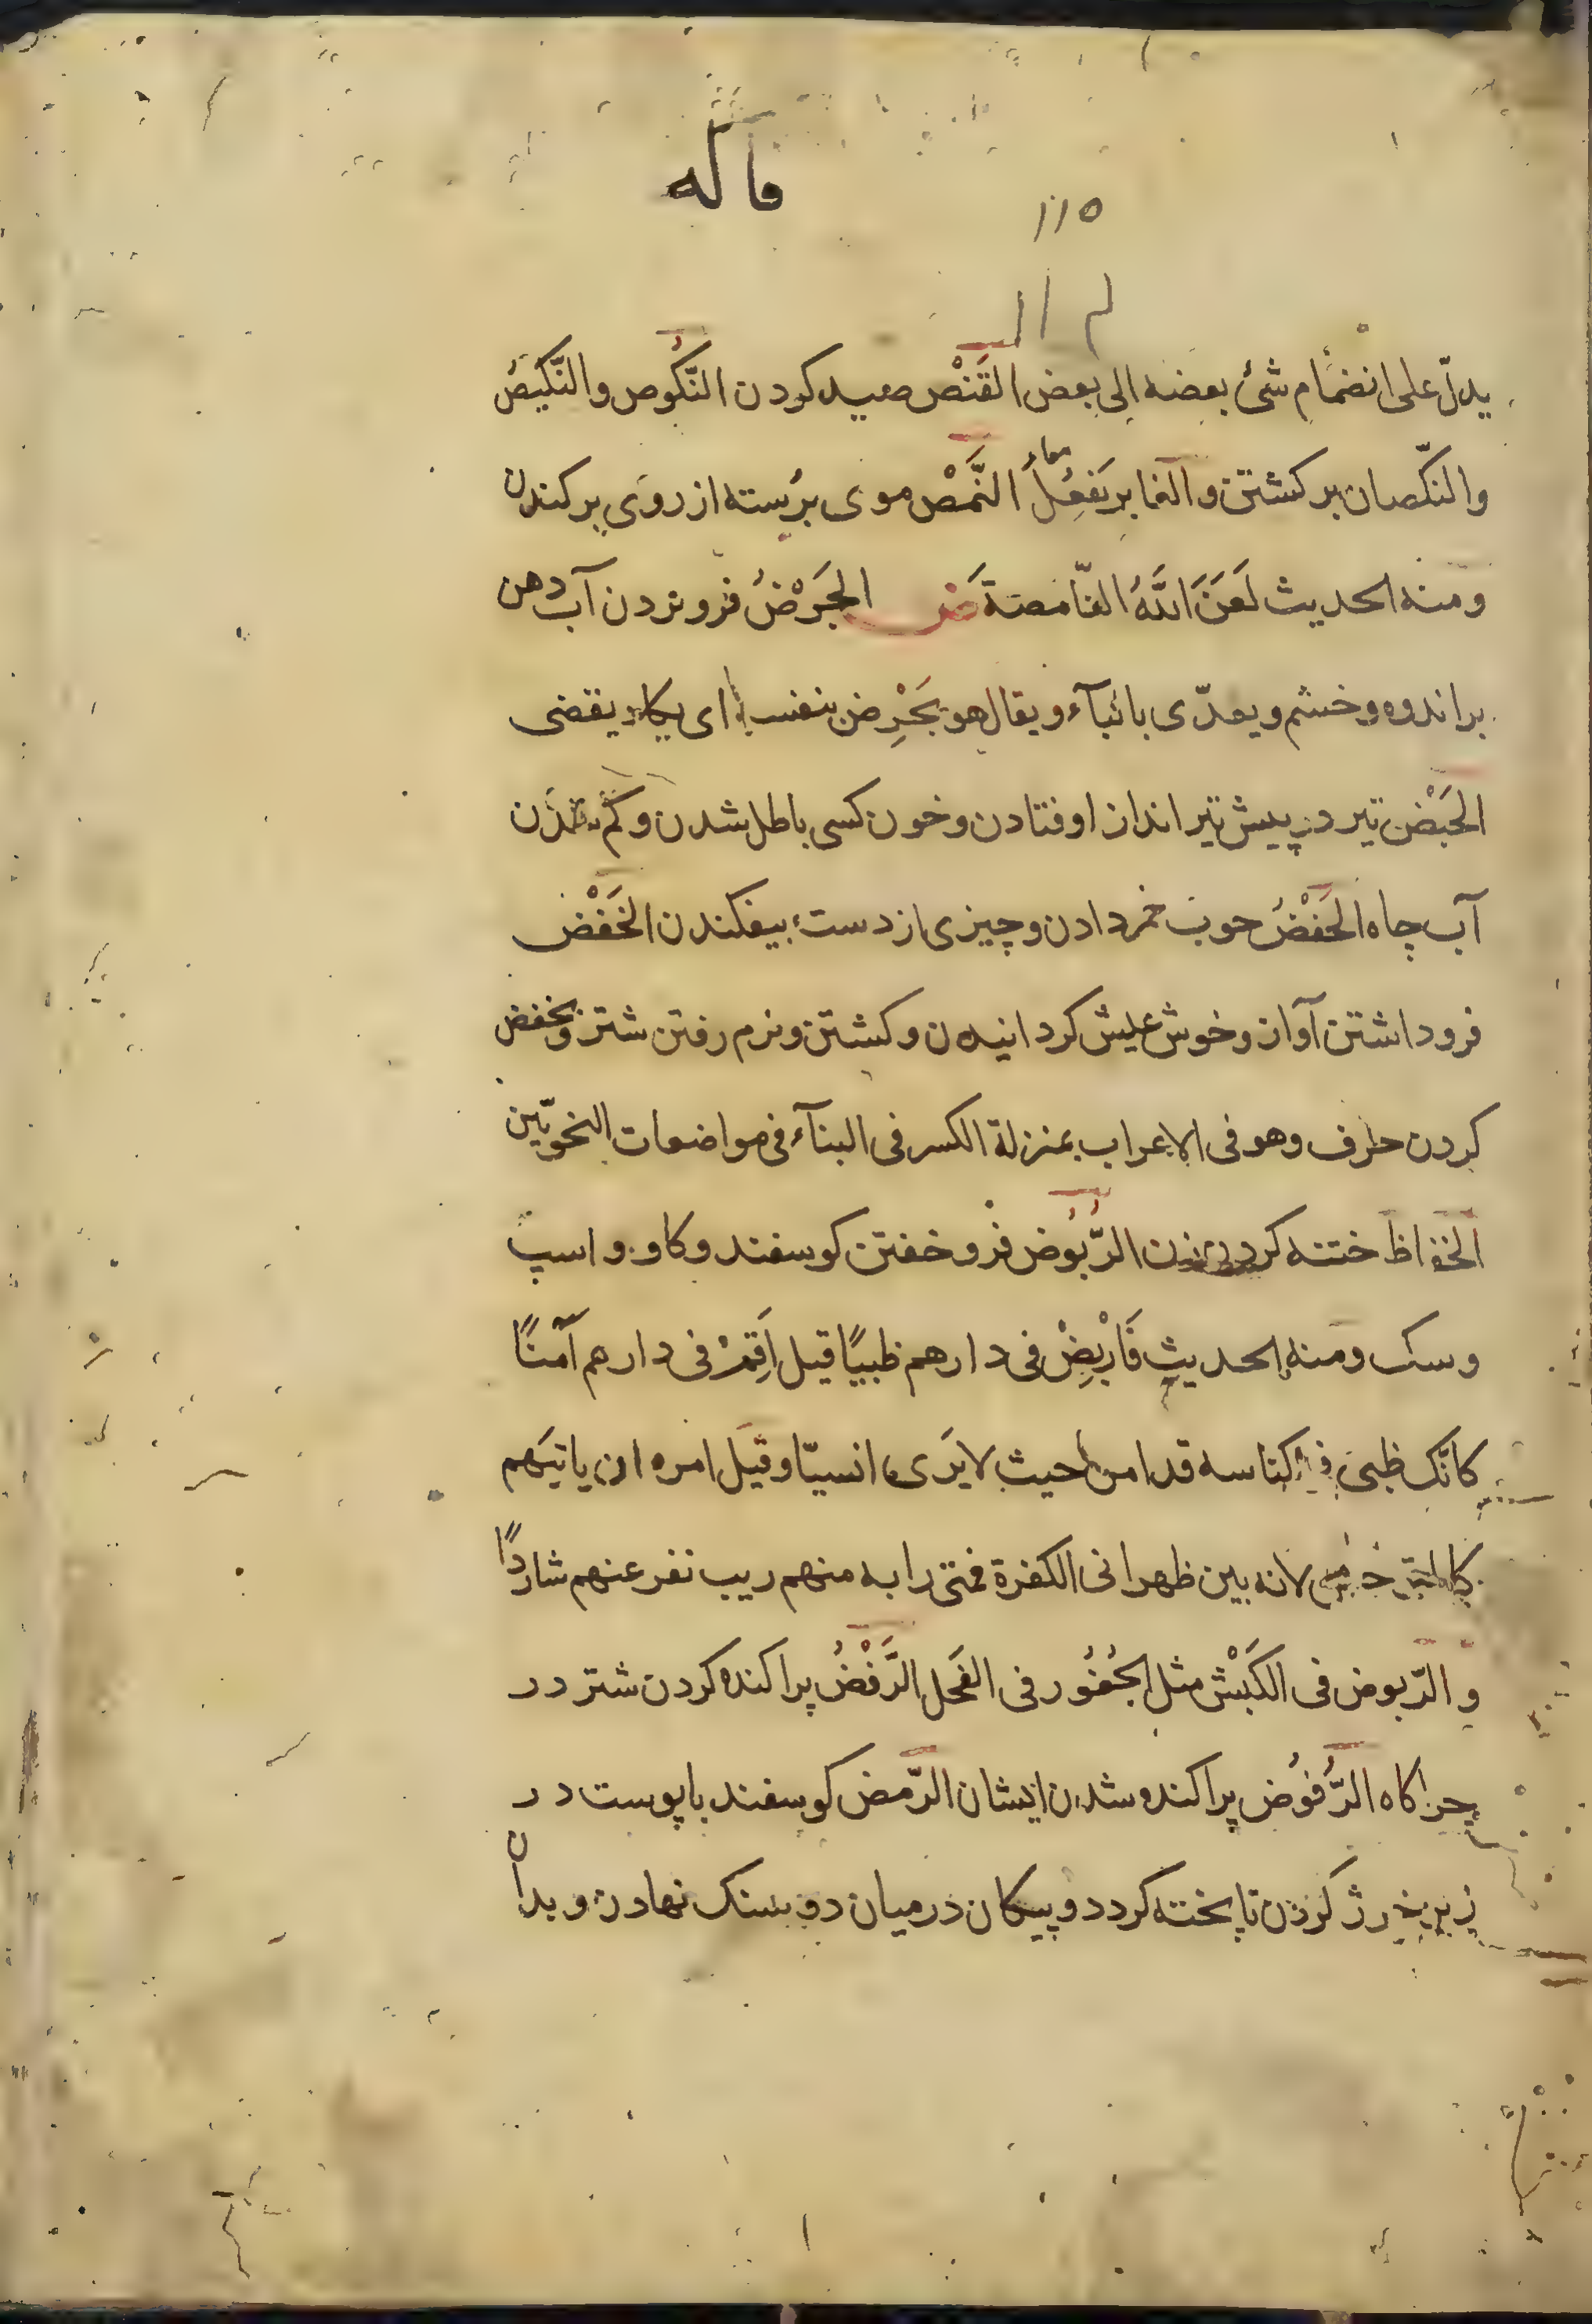 ۱۱۵
یدلّ علی انضمام شئ بعضه الی بعض القَنْص صید کردن النُّکُوص والنَّکیصُ
والنکّصان برکشتن و الغابر یَفعِلُ معاً النَّمْص موی برُسته از روی برکندن
ومنه الحدیث لَعَنَ اللَّهُ النّامصة ض الجَرْضُ فرو بردن آب دهن
براندوه و خشم و یعدّی بالبآء و یقال هو یَجْرِض بنفسه ای یکاد یقضی
الحَبْض تیر در پیش تیرانداز اوفتادن و خون کسی باطل شدن و کم شدن
آب چاه الحَفْضُ چوب خم دادن و چیزی از دست بیفکندن الخَفْض
فرو داشتن آواز و خوش عیش کردانیدن و کشتن و نرم رفتن شتر و بخفض
کردن حرف وهو فی الاعراب بمنزلة الکسر فی البنآء فی مواضعات النحویّین
الخفاظ ختنه کردن زن الرُّبُوض فرو خفتن کوسفند و کاو و اسب
وسک ومنه الحدیث فَارْبِضْ فی دارهم ظبیًا قیل اَقِمْ فی دارهم آمنًا
کانّک ظبی فی کناسه قد امن حیث لا یَری انسیّا وقیل امره ان یاتیَهم
لانه بین ظهرانی الکفرة فمتی رابه منهم ریب نفر عنهم شاردًا
و الرّبوض فی الکَبْش مثل الجُفُور فی الفَحل الرَّفْضُ پراکنده کردن شتر در
چراکاه الرُّفُوْض پراکنده شدن ایشان الرّمض کوسفند با پوست در
زیر کردن تا پخته کردد و پیکان در میان دو سنک نهادن و بدان